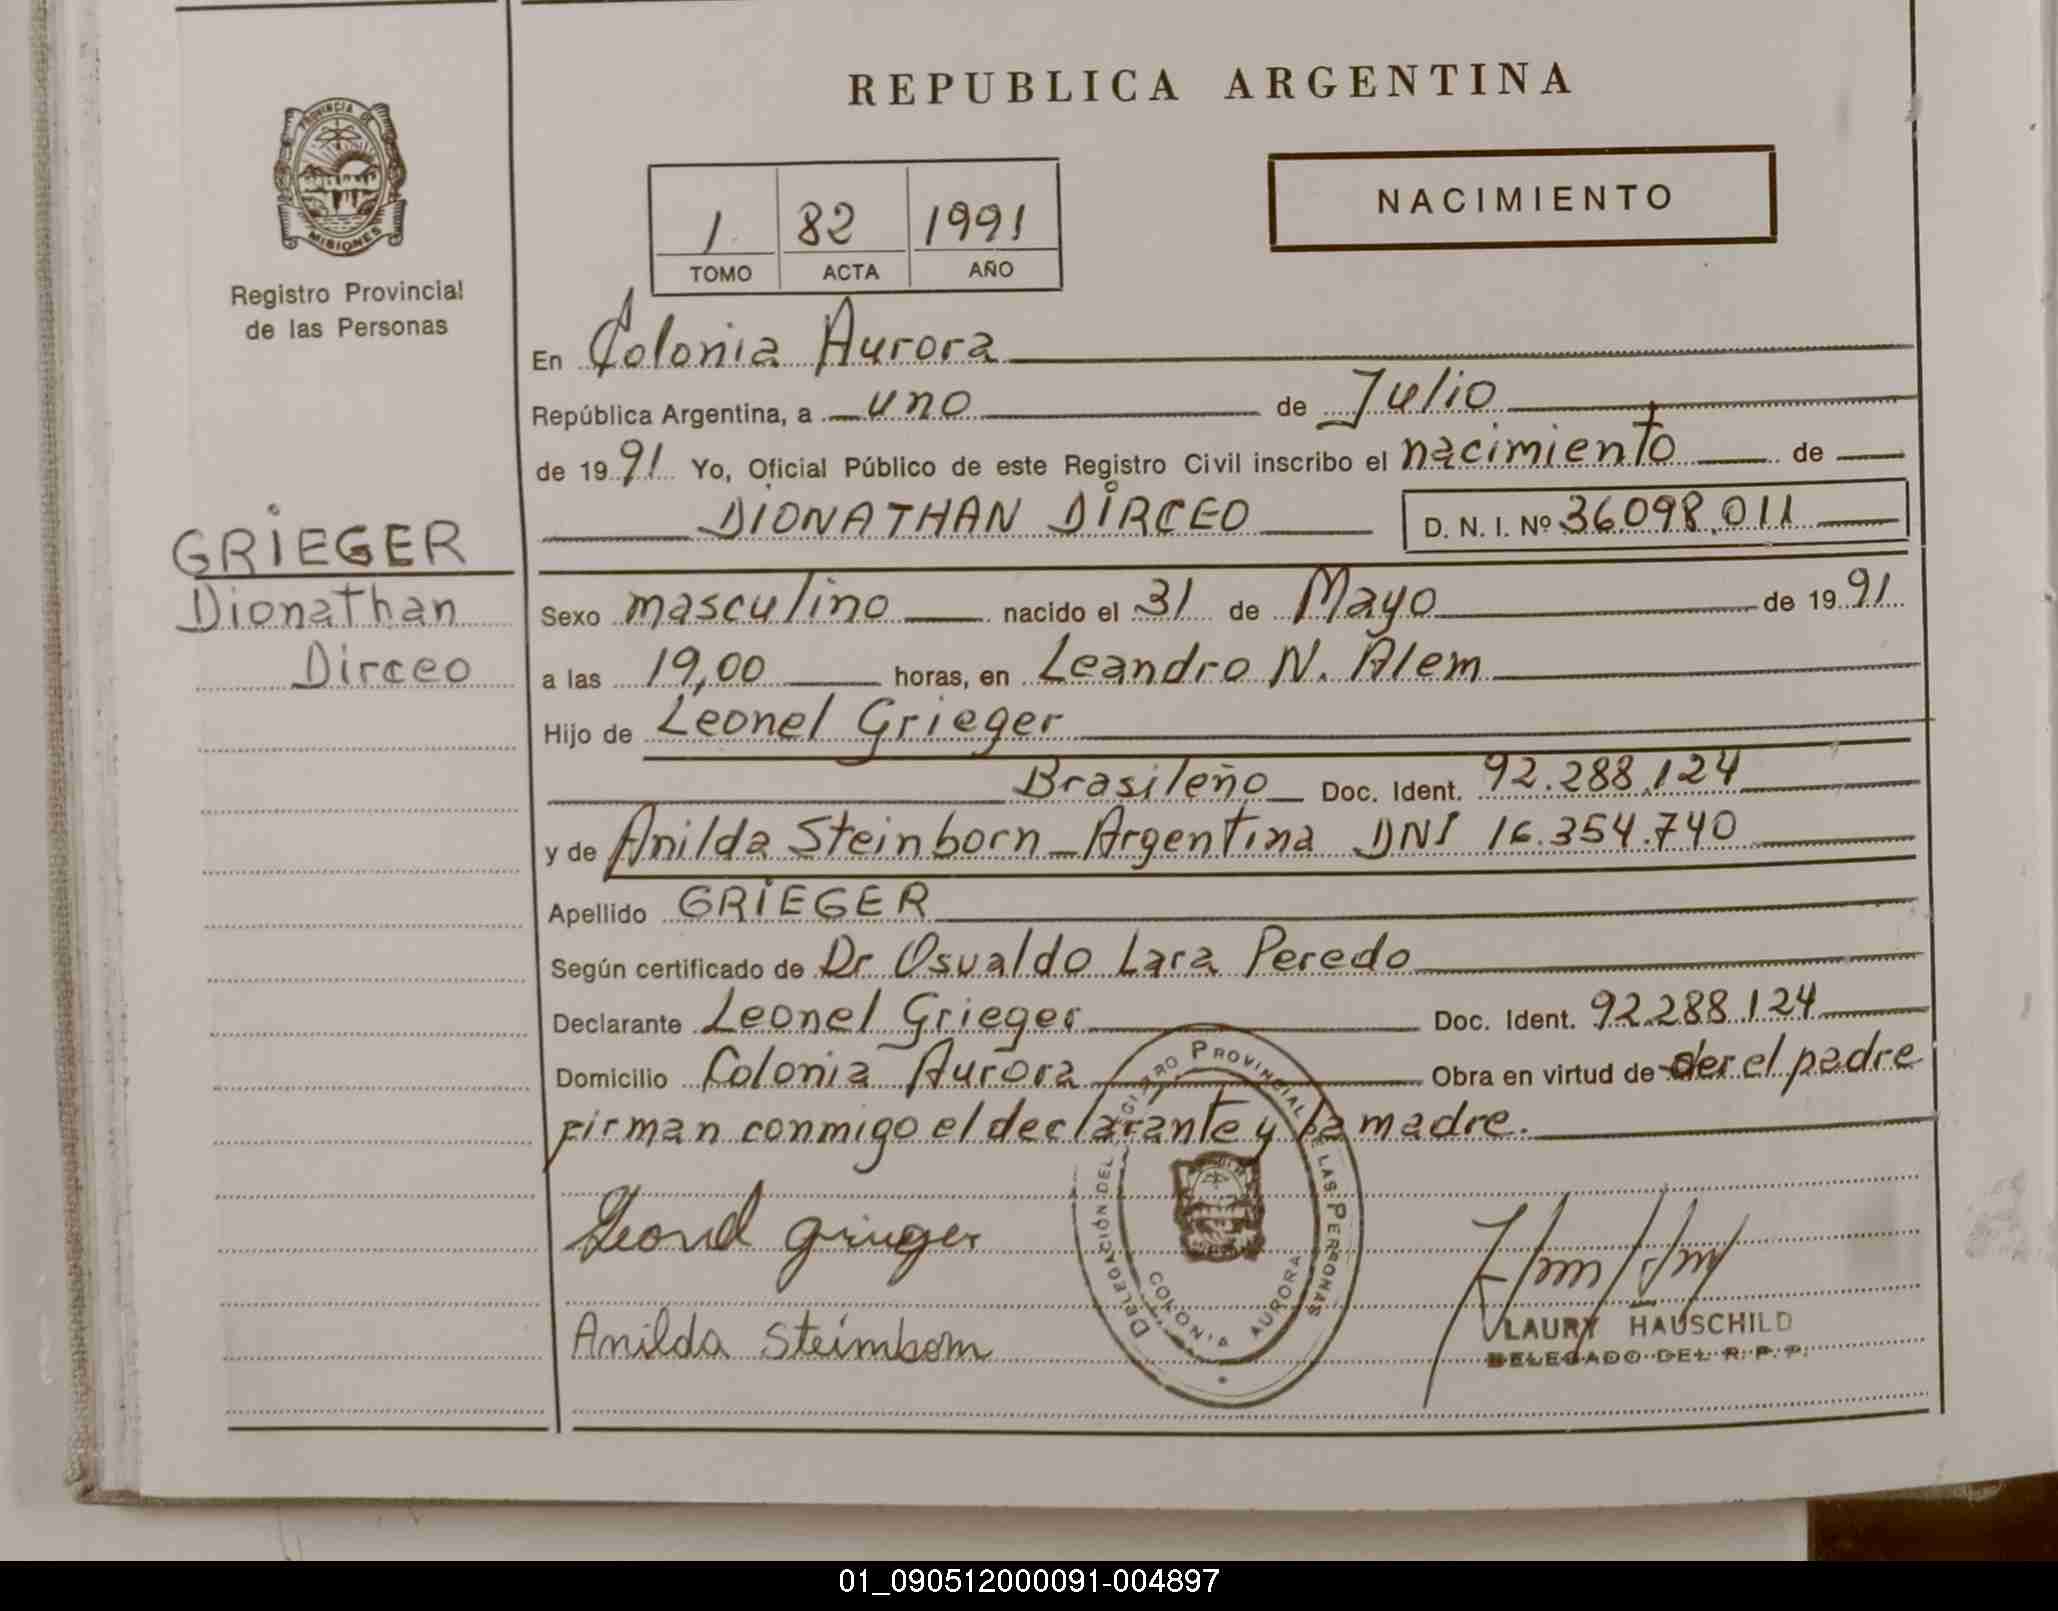 REPUBLICA ARGENTINA
PROVINCIA DE
MISIONES
Registro Provincial
de las Personas
NACIMIENTO
1 82 1991
TOMO ACTA AÑO
En Colonia Aurora
República Argentina, a uno de Julio
de 1991 Yo, Oficial Público de este Registro Civil inscribo el nacimiento de
DIONATHAN DIRCEO D. N. I. Nº 36.098.011
GRIEGER
Dionathan
Dirceo
Sexo masculino nacido el 31 de Mayo de 1991
a las 19,00 horas, en Leandro N. Alem
Hijo de Leonel Grieger
Brasileño Doc. Ident. 92.288.124
y de Anilda Steinborn - Argentina DNI 16.354.740
Apellido GRIEGER
Según certificado de Dr Osvaldo Lara Peredo
Declarante Leonel Grieger Doc. Ident. 92.288.124
Domicilio Colonia Aurora Obra en virtud de ser el padre
firman conmigo el declarante y la madre.
DELEGACIÓN DEL REGISTRO PROVINCIAL DE LAS PERSONAS
COLONIA AURORA
Leonel Grieger
Anilda Steimborn
LAURY HAUSCHILD
DELEGADO DEL R. P. P.
01_090512000091-004897